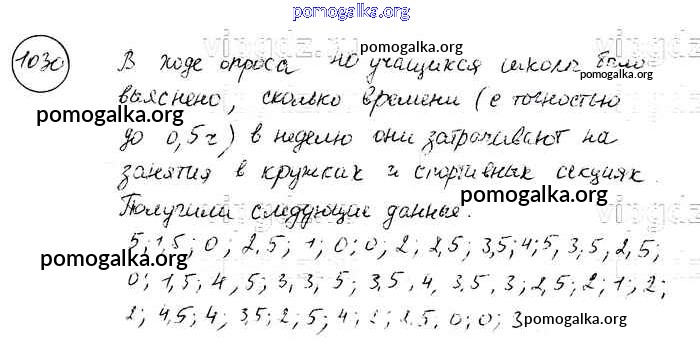 pomogalka.org
1030 В ходе опроса 40 учащихся школы было
pomogalka.org
pomogalka.org
выяснено, сколько времени (с точностью
pomogalka.org
до 0,5 ч) в неделю они затрачивают на
занятия в кружках и спортивных секциях.
pomogalka.org
Получили следующие данные.
5; 1,5; 0; 2,5; 1; 0; 0; 2; 2,5; 3,5; 4; 5, 3,5, 2,5;
pomogalka.org
0; 1,5; 4,5; 3, 3, 5; 3,5, 4, 3,5, 3; 2,5; 2; 1; 2;
2; 4,5; 4; 3,5; 2; 5; 4; 2,5, 0; 0; 3
pomogalka.org